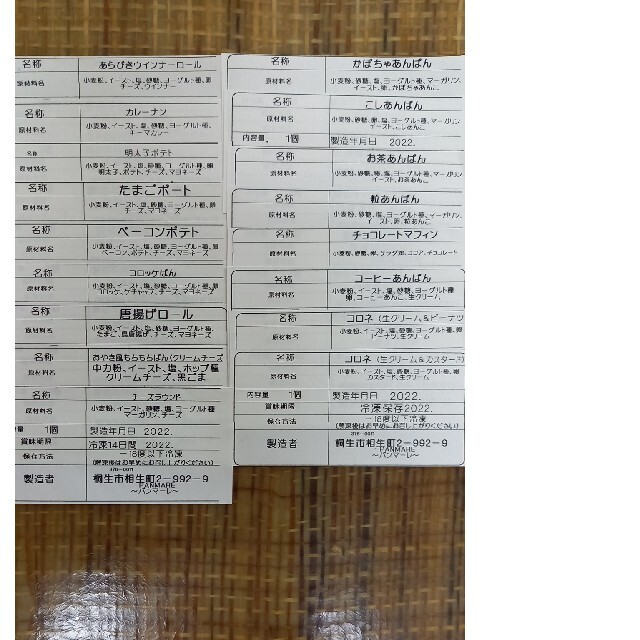 名称 あらびきウインナーロール
原材料名 小麦粉、イースト、塩、砂糖、ヨーグルト種、卵
チーズ、ウインナー
名称 カレーナン
原材料名 小麦粉、イースト、塩、砂糖、ヨーグルト種、
キーマカレー
名称 明太子ポテト
原材料名 小麦粉、イースト、塩、砂糖、ヨーグルト種、卵
明太子、ポテト、チーズ、マヨネーズ
名称 たまごボート
原材料名 小麦粉、イースト、塩、砂糖、ヨーグルト種、卵
チーズ、マヨネーズ
名称 ベーコンポテト
原材料名 小麦粉、イースト、塩、砂糖、ヨーグルト種、卵
ベーコン、ポテト、チーズ、マヨネーズ
名称 コロッケぱん
原材料名 小麦粉、イースト、塩、砂糖、ヨーグルト種、卵
コロッケ、ケチャップ、チーズ、マヨネーズ
名称 唐揚げロール
原材料名 小麦粉、イースト、塩、砂糖、ヨーグルト種、
たまご、唐揚げ、チーズ、マヨネーズ
名称 おやき風もちもちぱん(クリームチーズ
原材料名 中力粉、イースト、塩、ホップ種
クリームチーズ、黒ごま
名称 チーズラウンド
原材料名 小麦粉、イースト、塩、砂糖、ヨーグルト種
マーガリン、チーズ
量 1個 製造年月日 2022.
賞味期限 冷凍14日間 2022.
保存方法 −18度以下冷凍
(解凍後はお早めにお召し上がりください)
製造者 桐生市相生町2-992-9
PANMARE
〜パンマーレ〜
名称 かぼちゃあんぱん
原材料名 小麦粉、砂糖、塩、ヨーグルト種、マーガリン、
イースト、卵、かぼちゃあんこ
名称 こしあんぱん
原材料名 小麦粉、砂糖、卵、塩、ヨーグルト種、マーガリン、
イースト、こしあんこ
内容量、 1個 製造年月日 2022.
名称 お茶あんぱん
原材料名 小麦粉、砂糖、卵、塩、ヨーグルト種、マーガリン、
イースト、お茶あんこ
名称 粒あんぱん
原材料名 小麦粉、砂糖、塩、ヨーグルト種、マーガリン、
イースト、卵、粒あんこ
名称 チョコレートマフィン
原材料名 小麦粉、砂糖、卵、サラダ油、ココア、チョコレート
名称 コーヒーあんぱん
原材料名 小麦粉、イースト、塩、砂糖、ヨーグルト種
卵、コーヒーあんこ、生クリーム
名称 コロネ(生クリーム&ピーナツ
原材料名 小麦粉、イースト、塩、砂糖、ヨーグルト種、卵
ピーナツ、生クリーム
名称 コロネ(生クリーム&カスタード)
原材料名 小麦粉、イースト、塩、砂糖、ヨーグルト種、卵
カスタード、生クリーム
内容量 1個 製造年月日 2022.
賞味期限 冷凍保存2022.
保存方法 −18度以下冷凍
(解凍後はお早めにお召し上がりください)
376-0011
製造者 桐生市相生町2-992-9
PANMARE
〜パンマーレ〜